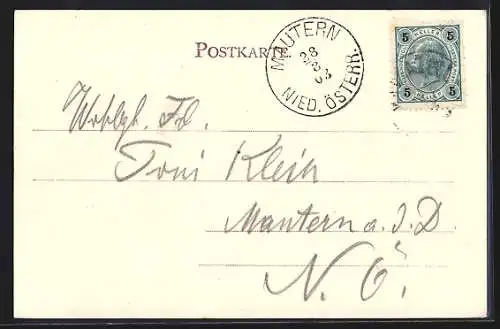 POSTKARTE.
MAUTERN
28
NIED. ÖSTERR.
5 5
HELLER
5 5
Wohlgb. Frl.
Toni Klein
Mautern a. d. D.
N. Ö.